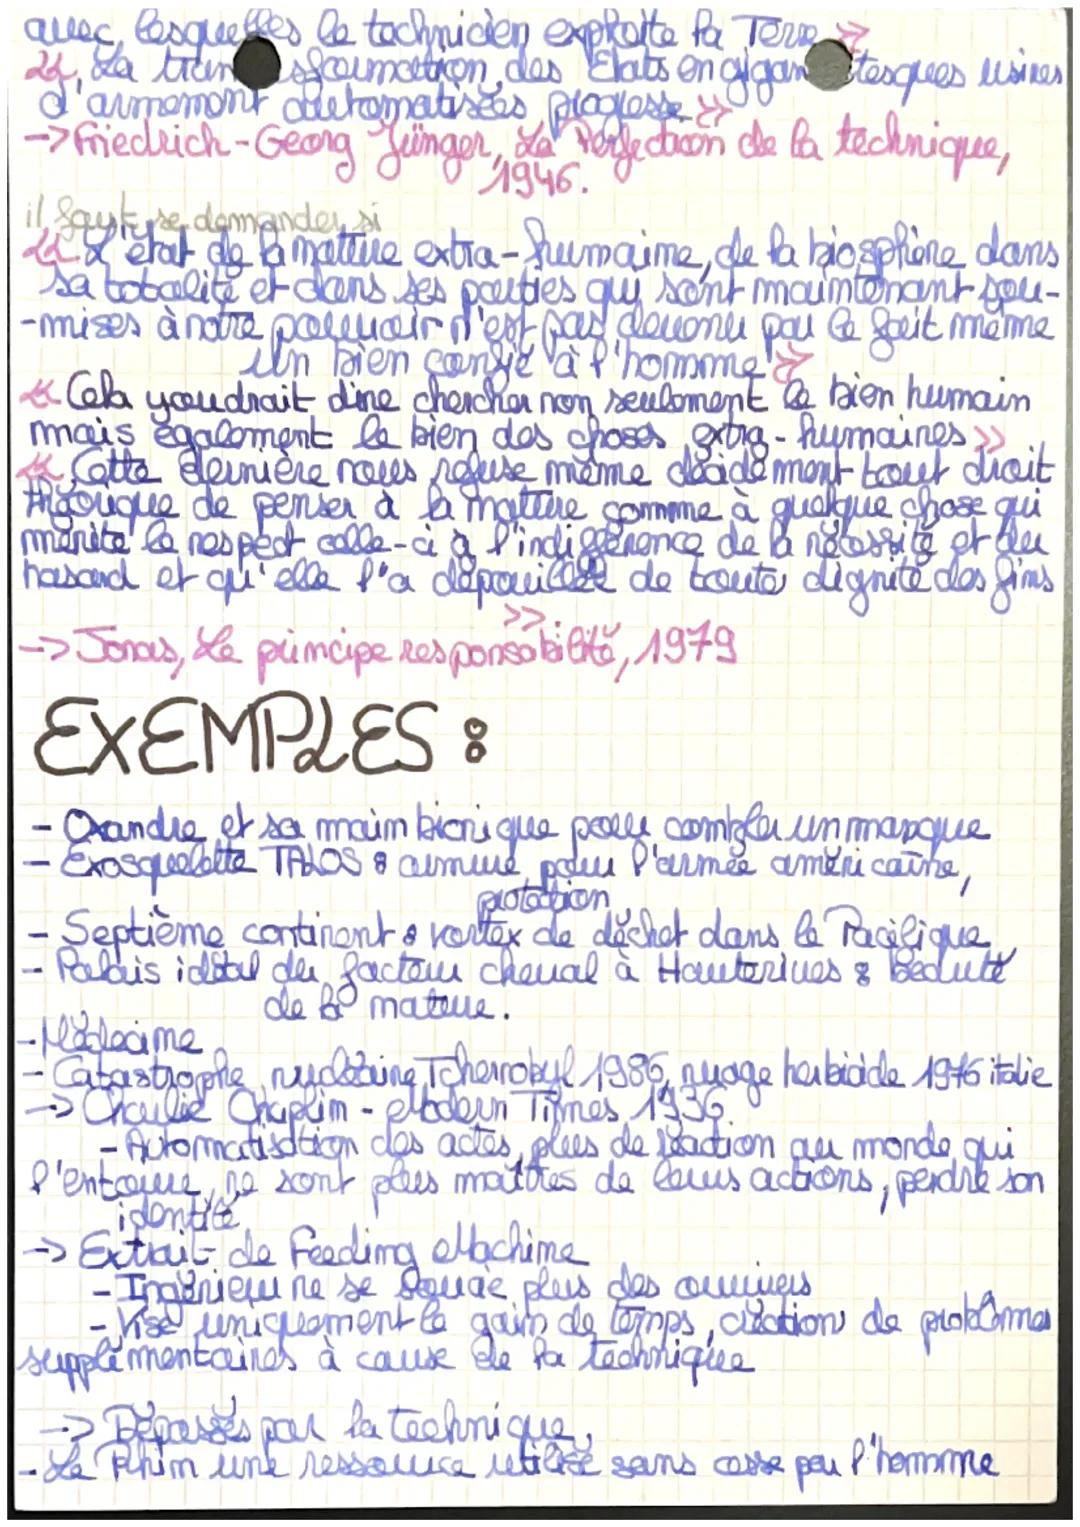 avec lesquelles le technicien exploite la Terre »
« La transformation des États en gigantesques usines
d'armement automatisées progresse »
-> Friedrich-Georg Jünger, La Perfection de la technique,
1946.
il faut se demander si
« L'état de la nature extra-humaine, de la biosphère dans
sa totalité et dans ses parties qui sont maintenant sou-
-mises à notre pouvoir n'est pas devenu par le fait même
un bien confié à l'homme »
« Cela voudrait dire chercher non seulement le bien humain
mais également le bien des choses extra-humaines »
« Cette dernière nous refuse même décidément tout droit
théorique de penser à la nature comme à quelque chose qui
mérite le respect celle-ci à l'indifférence de la nécessité et du
hasard et qu'elle l'a dépouillée de toute dignité des fins
»
-> Jonas, Le principe responsabilité, 1979
EXEMPLES :
- Oxandre et sa main bionique pour combler un manque
- Exosquelette TALOS : armure pour l'armée américaine,
protection
- Septième continent : vortex de déchet dans le Pacifique
- Palais idéal du facteur cheval à Hauterives : beauté
de la nature.
- Médecine
- Catastrophe nucléaire Tchernobyl 1986, nuage herbicide 1976 italie
-> Charlie Chaplin - Modern Times 1936
- Automatisation des actes, plus de réaction au monde qui
l'entoure, ne sont plus maîtres de leurs actions, perdre son
identité
-> Extrait de Feeding Machine
- Ingénieur ne se soucie plus des ouvriers
- Vise uniquement le gain de temps, création de problèmes
supplémentaires à cause de la technique
-> Dépassés par la technique,
- Le Rhin une ressource utilisé sans cesse par l'homme